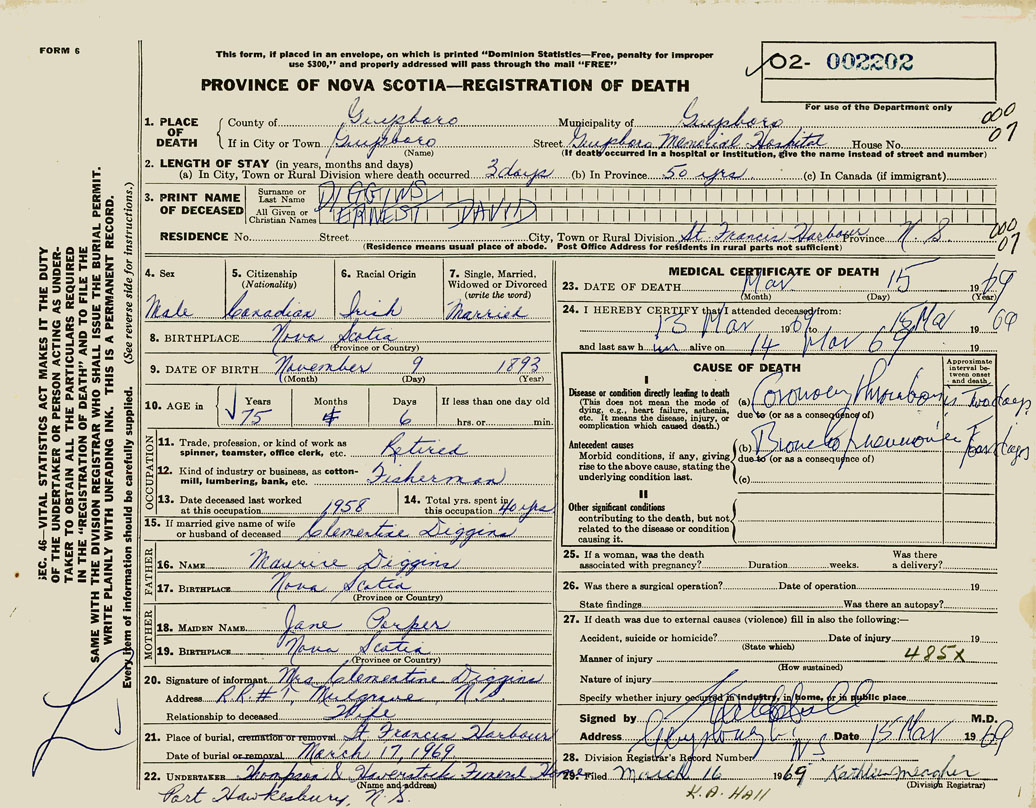 FORM 6
This form, if placed in an envelope, on which is printed "Dominion Statistics—Free, penalty for improper
use $300," and properly addressed will pass through the mail "FREE"
PROVINCE OF NOVA SCOTIA—REGISTRATION OF DEATH
02- 002202
For use of the Department only
000
07
1. PLACE OF DEATH
County of Guysboro Municipality of Guysboro
If in City or Town Guysboro Street Guysboro Memorial Hospital House No.
(Name) (If death occurred in a hospital or institution, give the name instead of street and number)
2. LENGTH OF STAY (in years, months and days)
(a) In City, Town or Rural Division where death occurred 3 days (b) In Province 50 yrs. (c) In Canada (if immigrant)
3. PRINT NAME OF DECEASED
Surname or Last Name DIGGINS
All Given or Christian Names ERNEST DAVID
RESIDENCE No. Street City, Town or Rural Division St Francis Harbour Province N.S.
(Residence means usual place of abode. Post Office Address for residents in rural parts not sufficient)
000
07
4. Sex Male
5. Citizenship (Nationality) Canadian
6. Racial Origin Irish
7. Single, Married, Widowed or Divorced (write the word) Married
8. BIRTHPLACE Nova Scotia
(Province or Country)
9. DATE OF BIRTH November 9 1893
(Month) (Day) (Year)
10. AGE in Years 75 Months 4 Days 6 If less than one day old hrs. or min.
OCCUPATION
11. Trade, profession, or kind of work as spinner, teamster, office clerk, etc. Retired
12. Kind of industry or business, as cotton-mill, lumbering, bank, etc. Fisherman
13. Date deceased last worked at this occupation 1958
14. Total yrs. spent in this occupation 40 yrs
15. If married give name of wife or husband of deceased Clementine Diggins
FATHER
16. NAME Maurice Diggins
17. BIRTHPLACE Nova Scotia
(Province or Country)
MOTHER
18. MAIDEN NAME Jane Porper
19. BIRTHPLACE Nova Scotia
(Province or Country)
20. Signature of informant Mrs Clementine Diggins
Address R.R. #1, Mulgrave, N.S.
Relationship to deceased Wife
21. Place of burial, cremation or removal St Francis Harbour
Date of burial or removal March 17, 1969
22. UNDERTAKER Thompson & Haverstock Funeral Home
(Name and address)
Port Hawkesbury, N.S.
MEDICAL CERTIFICATE OF DEATH
23. DATE OF DEATH Mar 15 1969
(Month) (Day) (Year)
24. I HEREBY CERTIFY that I attended deceased from:
13 Mar 1969 to 15 Mar 1969
and last saw him alive on 14 Mar 69 19
CAUSE OF DEATH
Approximate interval between onset and death
I
Disease or condition directly leading to death
(This does not mean the mode of dying, e.g., heart failure, asthenia, etc. It means the disease, injury, or complication which caused death.)
(a) Coronary thrombosis Two days
due to (or as a consequence of)
Antecedent causes
Morbid conditions, if any, giving rise to the above cause, stating the underlying condition last.
(b) Broncho pneumonia Four days
due to (or as a consequence of)
(c)
II
Other significant conditions
contributing to the death, but not related to the disease or condition causing it.
25. If a woman, was the death associated with pregnancy? Duration weeks. Was there a delivery?
26. Was there a surgical operation? Date of operation 19
State findings Was there an autopsy?
27. If death was due to external causes (violence) fill in also the following:—
Accident, suicide or homicide? Date of injury 19
(State which)
Manner of injury 485X
(How sustained)
Nature of injury
Specify whether injury occurred in industry, in home, or in public place
Signed by M.D.
Address Guysboro N.S. Date 15 Mar 1969
28. Division Registrar's Record Number
29. Filed March 16 1969 Kathleen Meagher
(Division Registrar)
K.A. Hall
SEC. 46—VITAL STATISTICS ACT MAKES IT THE DUTY
OF THE UNDERTAKER OR PERSON ACTING AS UNDER-
TAKER TO OBTAIN ALL THE PARTICULARS REQUIRED
IN THE "REGISTRATION OF DEATH" AND TO FILE THE
SAME WITH THE DIVISION REGISTRAR WHO SHALL ISSUE THE BURIAL PERMIT.
WRITE PLAINLY WITH UNFADING INK. THIS IS A PERMANENT RECORD.
Every item of information should be carefully supplied. (See reverse side for instructions.)